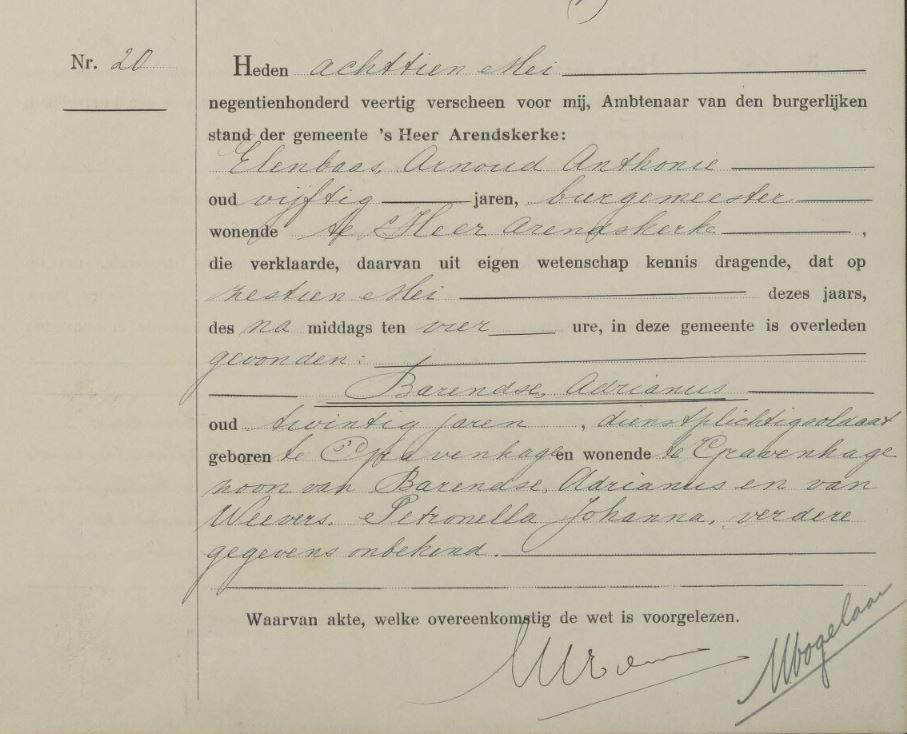 Nr. 20
Heden achttien Mei
negentienhonderd veertig verscheen voor mij, Ambtenaar van den burgerlijken
stand der gemeente 's Heer Arendskerke:
Elenbaas, Arnoud Anthonie
oud vijftig jaren, burgemeester
wonende te s Heer Arendskerke,
die verklaarde, daarvan uit eigen wetenschap kennis dragende, dat op
zestien Mei dezes jaars,
des na middags ten vier ure, in deze gemeente is overleden
gevonden:
Barendse, Adrianus
oud twintig jaren, dienstplichtigsoldaat
geboren te 's Gravenhage en wonende te Gravenhage
zoon van Barendse, Adrianus en van
Weevers, Petronella Johanna, verdere
gegevens onbekend.
Waarvan akte, welke overeenkomstig de wet is voorgelezen.